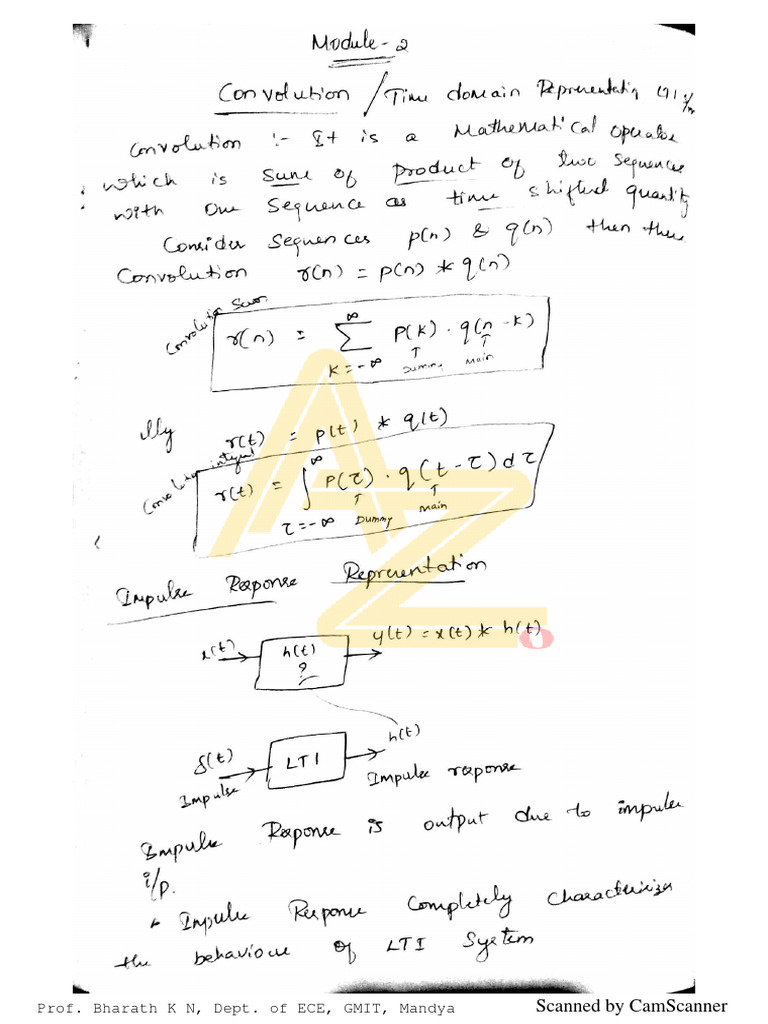 Module-2
Convolution / Time domain Representatin LTI s/m
Convolution :- It is a Mathematical operator
which is sum of product of two sequences
with one sequence as time shifted quantity
Consider sequences p(n) & q(n) then there
Convolution r(n) = p(n) * q(n)
Convolution Sum
r(n) = ∞ Σ K=-∞ P(K) . q(n-K)
Dummy Main
lly r(t) = p(t) * q(t)
Convolution integral
r(t) = ∞ ∫ τ=-∞ P(τ) . q(t-τ) dτ
Dummy Main
Impulse Response Representation
x(t) h(t) ? y(t) = x(t) * h(t)
δ(t) LTI h(t)
Impulse Impulse response
Impulse Response is output due to impulse
i/p.
Impulse Response completely characterizes
the behaviour of LTI System
Prof. Bharath K N, Dept. of ECE, GMIT, Mandya Scanned by CamScanner
AZ